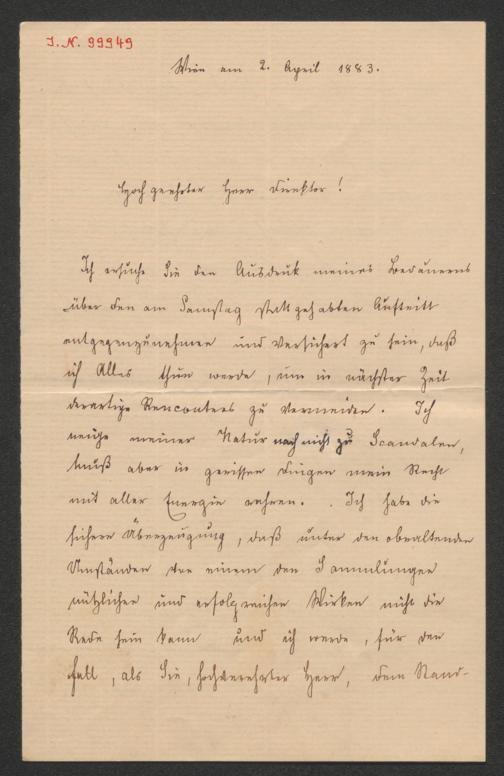 I. N. 99949
Wien am 2. April 1883.
Hochgeehrter Herr Direktor!
Ich ersuche Sie den Ausdruk meines Bedauerns
über den am Samstag stattgehabten Auftritt
entgegenzunehmen und versichert zu sein, daß
ich Alles thun werde, um in nächster Zeit
derartige Rencontres zu vermeiden. Ich
neige meiner Natur nach nicht zu Scandalen,
muß aber in gewissen Dingen mein Recht
mit aller Energie wahren. Ich habe die
sichere Überzeugung, daß unter den obwaltenden
Umständen von einem den Sammlungen
nützlichen und erfolgreichen Wirken nicht die
Rede sein kann und ich werde, für den
Fall, als Sie, hochverehrter Herr, dem Stand-